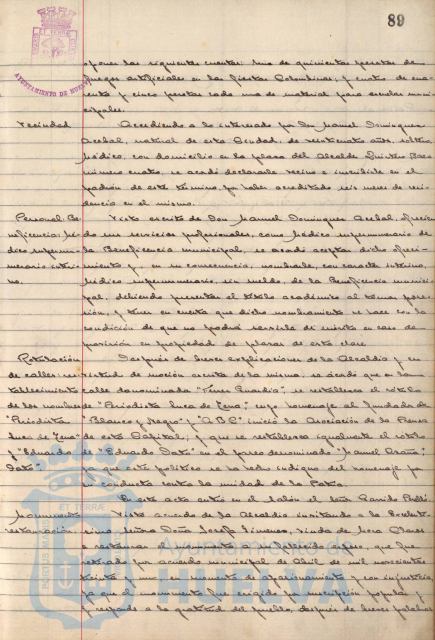 89
AYUNTAMIENTO DE HUELVA
las siguientes cuentas: una de quinientas pesetas de
fuegos artificiales en las fiestas Colombinas, y cuatro de
y cinco pesetas cada una de material para escuelas muni-
cipales.
Vecindad Accediendo a lo interesado por Don Manuel Dominguez
natural de esta Ciudad, de veinticuatro años, soltero,
Médico, con domicilio en la plaza del Alcalde
número cuatro, se acordó declararle vecino e inscribirle en el
padrón de este término, por haber acreditado seis meses de resi-
dencia en el mismo.
Personal. Be- Visto escrito de Don Manuel Dominguez ofrecien-
neficencia. Mé- do sus servicios profesionales, como Médico supernumerario de
dico supernu- la Beneficencia municipal, se acordó aceptar dicho ofreci-
merario interi- miento y, en su consecuencia, nombrarle, con caracter interino,
no. Médico supernumerario, sin sueldo, de la Beneficencia munici-
pal, debiendo presentar el título académico al tomar pose-
sión, y tener en cuenta que dicho nombramiento se hace con la
condición de que no podrá servirle de mérito en caso de
provisión en propiedad de plazas de esta clase.
Rotulación Después de breves explicaciones de la Alcaldía y en
de calles: res- virtud de moción escrita de la misma, se acordó que a la
tablecimiento calle denominada "Ferrer Guardia", se restablezca el rótulo
de los nombres de "Periodista Luca de Tena", cuyo homenaje al fundador de
"Periodista "Blanco y Negro" y "A B C" inició la Asociación de la Prensa
Luca de Tena" de esta Capital; y que se restablezca igualmente el rótulo
y "Eduardo de "Eduardo Dato" en el paseo denominado "Manuel Azaña",
Dato". ya que este político se ha hecho indigno del homenaje por
su conducta contra la unidad de la Patria.
En este acto entra en el Salón el Señor Garrido Perelló.
Monumento Visto acuerdo de la Alcaldía invitando a la Excelentí-
restauración sima Señora Doña Josefa Jimenez, viuda de Mora Claros
a restaurar el monumento a su fallecido esposo, que fue
retirado por acuerdo municipal de Abril de mil novecientos
treinta y uno, en momentos de apasionamiento y con injusticia
ya que el monumento fue erigido por suscripción popular y
responde a la gratitud del pueblo, después de breves palabras
Ayuntamiento de
HUELVA